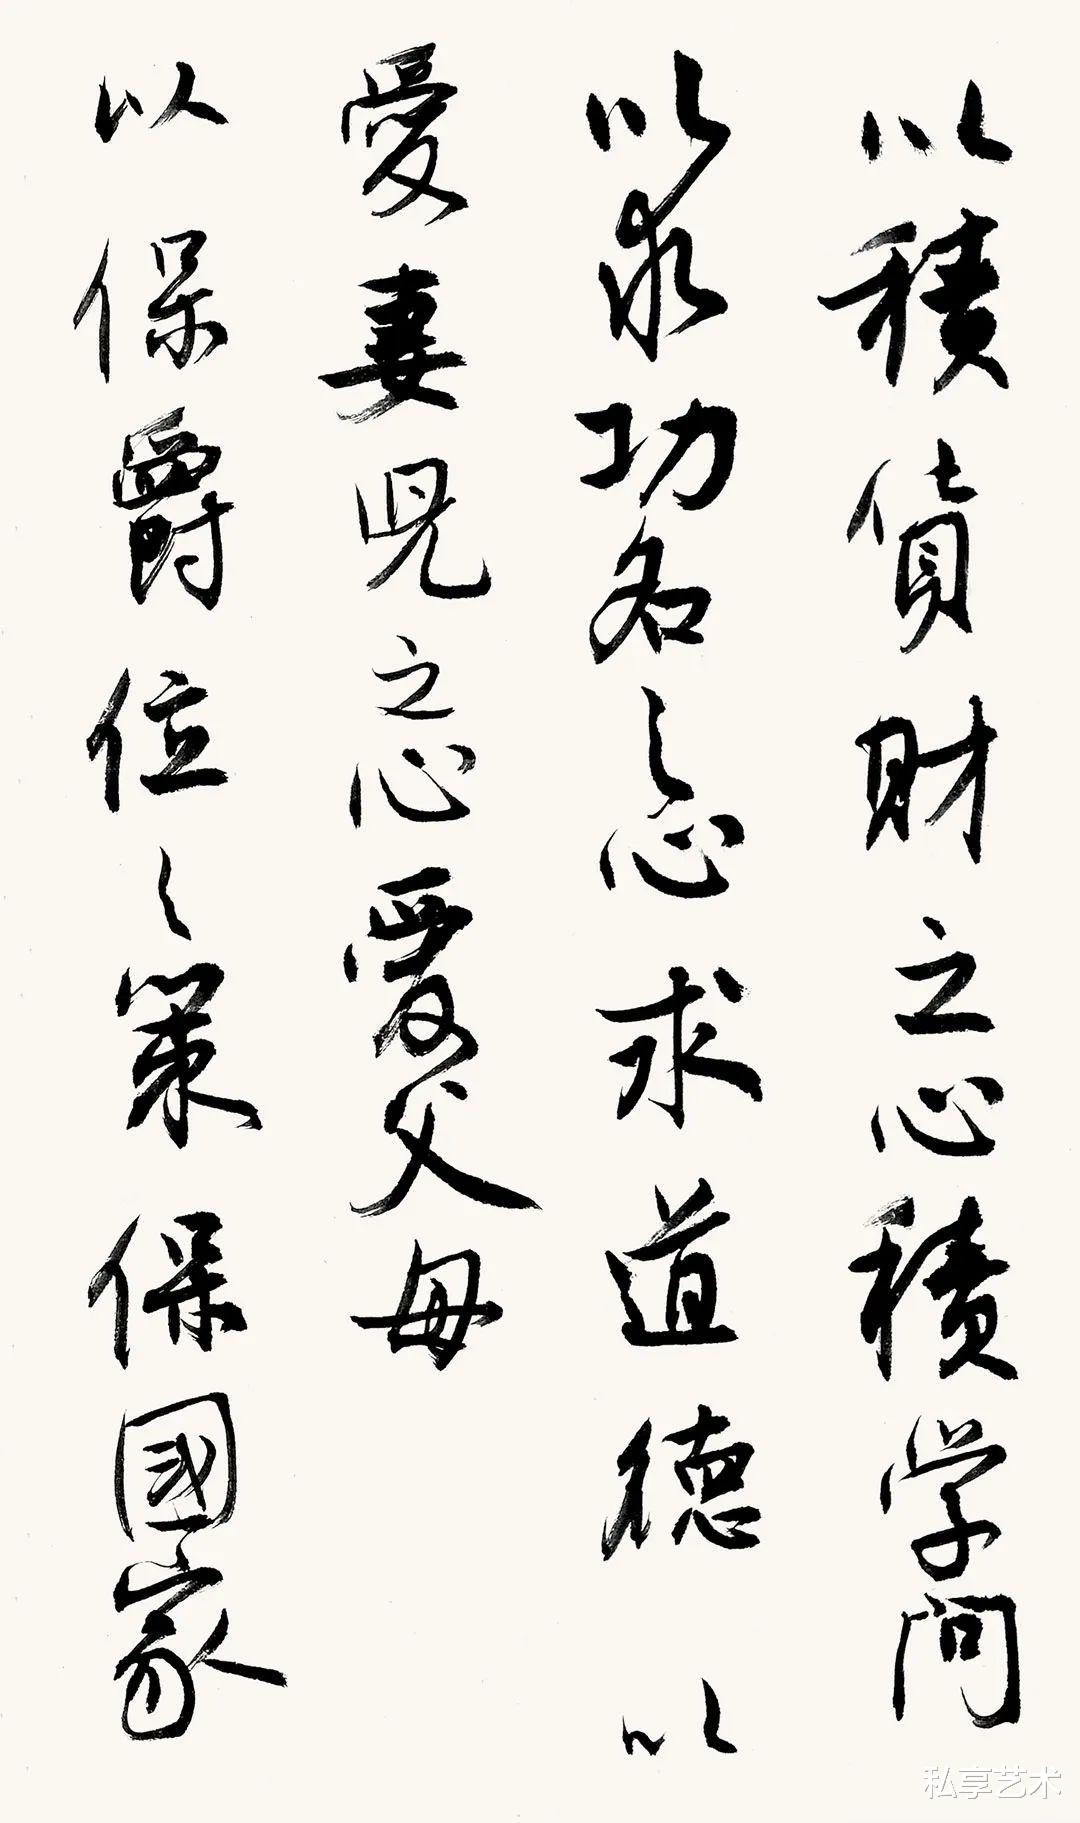 以積貨財之心積学问
以求功名之心求道德以
愛妻児之心愛父母
以保爵位之策保國家
私享艺术